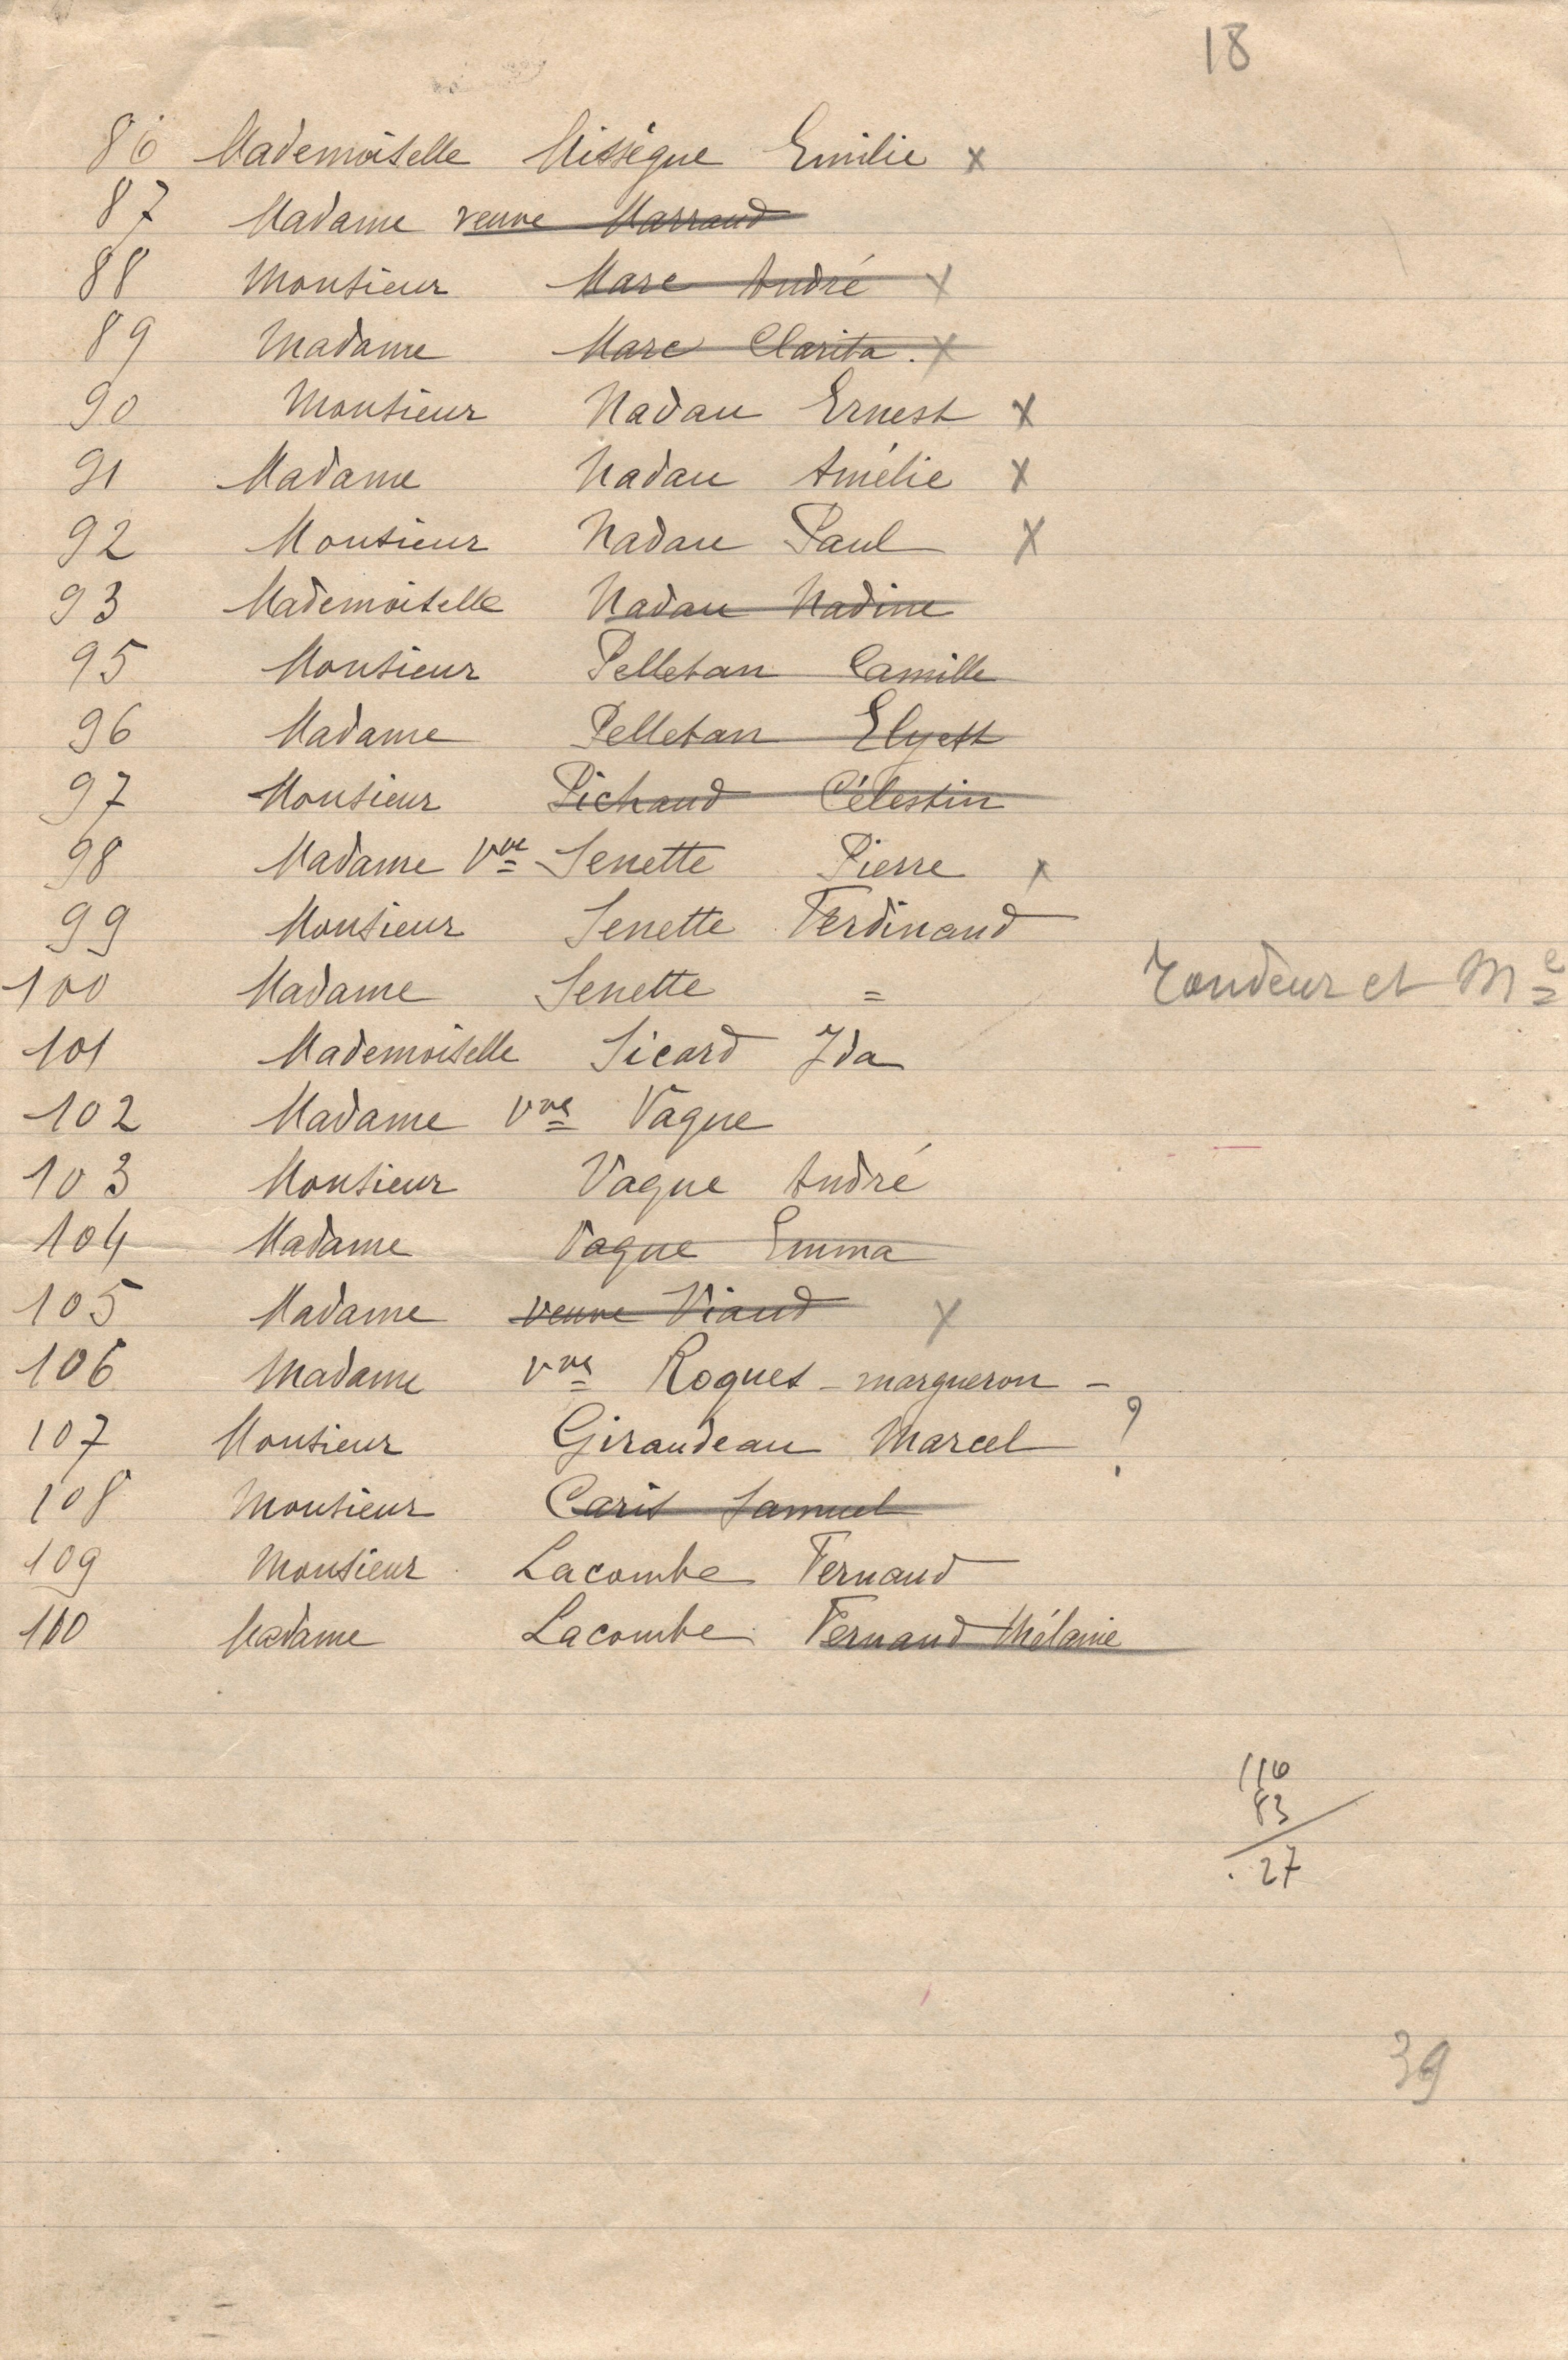 18
86 Mademoiselle Missègue Emilie x
87 Madame veuve Marraud
88 Monsieur Marc André x
89 Madame Marc Clarita. x
90 Monsieur Nadau Ernest x
91 Madame Nadau Amélie x
92 Monsieur Nadau Paul x
93 Mademoiselle Nadau Nadine
95 Monsieur Pelletan Camille
96 Madame Pelletan Elyett
97 Monsieur Pichaud Célestin
98 Madame Vve Senette Pierre x
99 Monsieur Senette Ferdinand
100 Madame Senette = Tondeur et Me
101 Mademoiselle Sicard Ida
102 Madame Vve Vague
103 Monsieur Vague André
104 Madame Vague Emma
105 Madame veuve Viaud x
106 Madame Vve Roques - margueron -
107 Monsieur Giraudeau Marcel ?
108 Monsieur Caris Samuel
109 Monsieur Lacombe Fernand
110 Madame Lacombe Fernand Mélanie
110
83
27
39